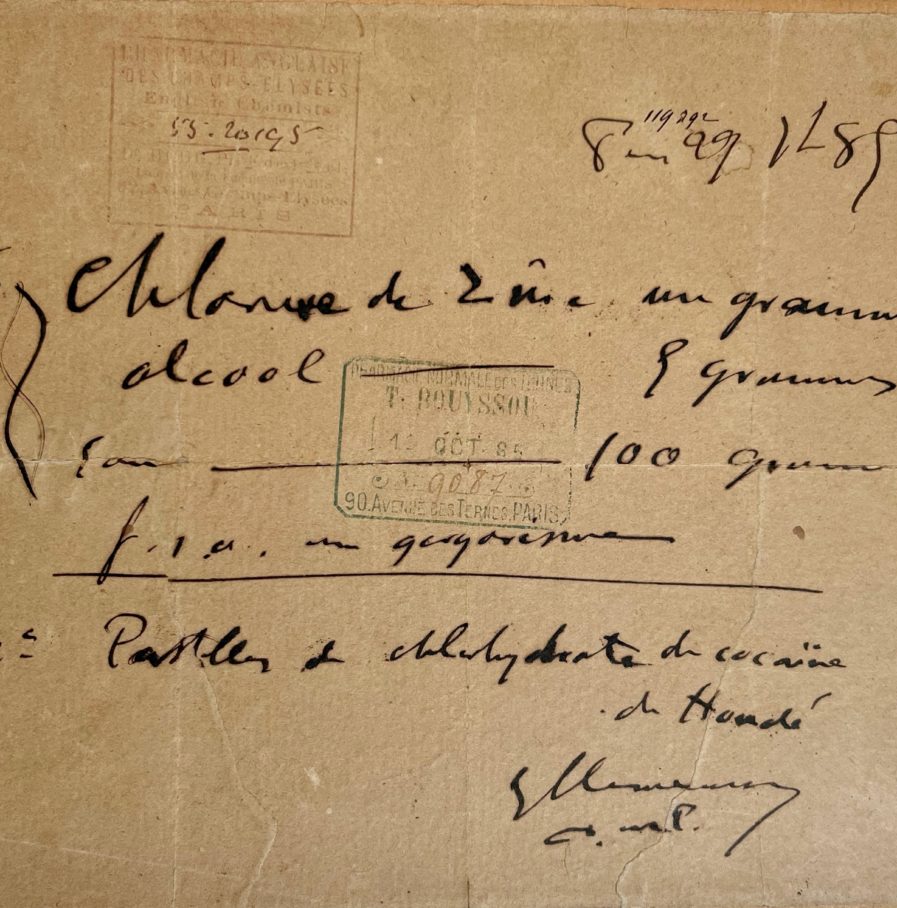 PHARMACIE ANGLAISE
DES CHAMPS-ELYSÉES
English Chemists
PARIS
119292
29 85
Chlorure de Zinc un gramme
alcool 5 grammes
eau 100 gram
f. s. a. un gargarisme
PHARMACIE NORMALE DES TERNES
T. BOUYSSOU
OCT 85
9087
90. AVENUE DES TERNES. PARIS
2º Pastilles de chlorhydrate de cocaïne
de Houdé